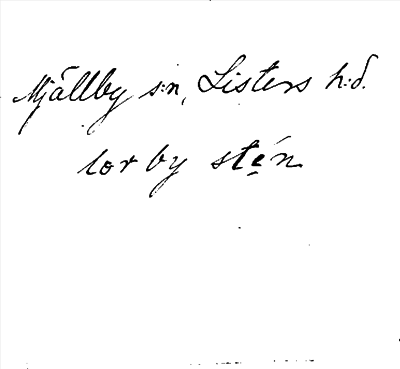 Mjällby s:n, Listers h:d.
lor by stén